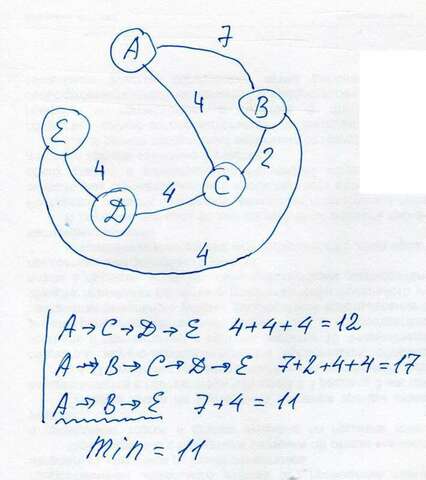 A
7
4
B
E
2
4
C
4
D
4
A→C→D→E 4+4+4=12
A→B→C→D→E 7+2+4+4=17
A→B→E 7+4=11
min=11